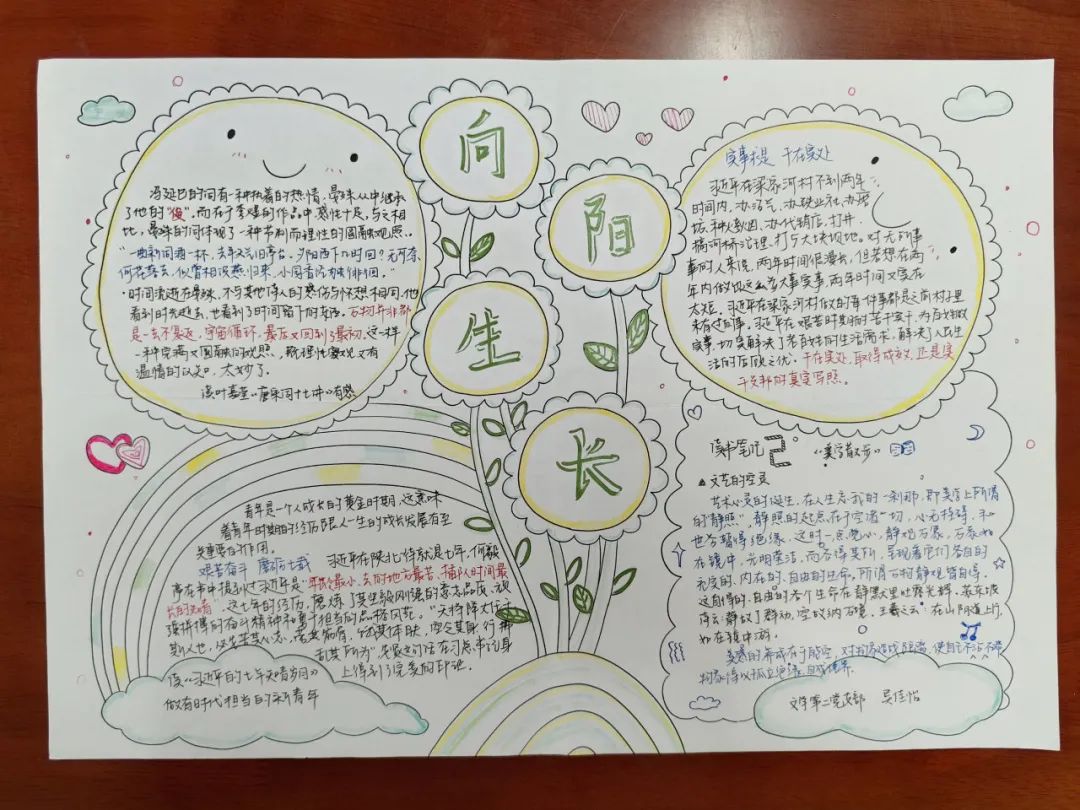 向
阳
生
长
冯延巳的词有一种执着的热情,晏殊从中继承
了他的“俊”。而在于李煜的作品中感性十足,与之相
比,晏殊的词体现了一种节制而理性的圆融观照。
“一曲新词酒一杯,去年天气旧亭台。夕阳西下几时回?无可奈
何花落去,似曾相识燕归来,小园香径独徘徊。”
时间流逝在晏殊,不与其他诗人的感伤与怀想相同,他
看到时光逝去,也看到了时间留下的东西。万物并非都
是一去不复返,宇宙循环,最后又回到了最初。这一样
一种完满又圆融的观照,既理性客观又有
温情的认知。太妙了。
读叶嘉莹《唐宋词十七讲》有感
实事求是 干在实处
习近平在梁家河村不到两年
时间内,办沼气、办铁业社、办磨
坊、种烤烟、办代销店、打井、
搞河桥治理、打5大块坝地。对无所事
事的人来说,两年时间很漫长,但若想在两
年内做这么多大事实事,两年时间又实在
太短。习近平在梁家河村做的每件事都是之前村子里
未有过的事。习近平在艰苦时期的苦干实干,为百姓做
实事,切实解决了老百姓的生活需求,解决了人民生
活的后顾之忧。干在实处,取得成效,正是实
干支部的真实写照。
青年是一个人成长的黄金时期,这意味
着青年时期的经历跟人一生的成长发展有至
关重要的作用。
艰苦奋斗 磨砺七载
习近平在陕北一待就是七年,何毅
亭在书中提到过习近平是“年龄最小、去的地方最苦、插队时间最
长的知青”,这七年的经历,磨炼了其坚毅刚强的意志品质、顽
强拼搏的奋斗精神和勇于担当的品格风范。“天将降大任于
斯人也,必先苦其心志,劳其筋骨,饿其体肤,空乏其身,行拂
乱其所为”先贤这句话在习总书记身
上得到了完美的印证。
读《习近平的七年知青岁月》
做有时代担当的新青年
读书笔记 2 《美学散步》
▲文艺的空灵
艺术心灵的诞生,在人生忘我的一刹那,即美学上所谓
的“静照”,静照的起点在于空诸一切,心无挂碍,和
世务暂时绝缘。这时一点觉心,静观万象,万象如
在镜中,光明莹洁,而各得其所,呈现着它们各自的
充实的、内在的、自由的生命,所谓万物静观皆自得。
这自得的、自由的各个生命在静默里吐露光辉。苏东坡
诗云:静故了群动,空故纳万境。王羲之云:在山阴道上行,
如在镜中游。
美感的养成在于能空,对物象造成距离,使自己不沾不滞
物象得以孤立绝缘,自成境界。
文学第二党支部 吴佳怡